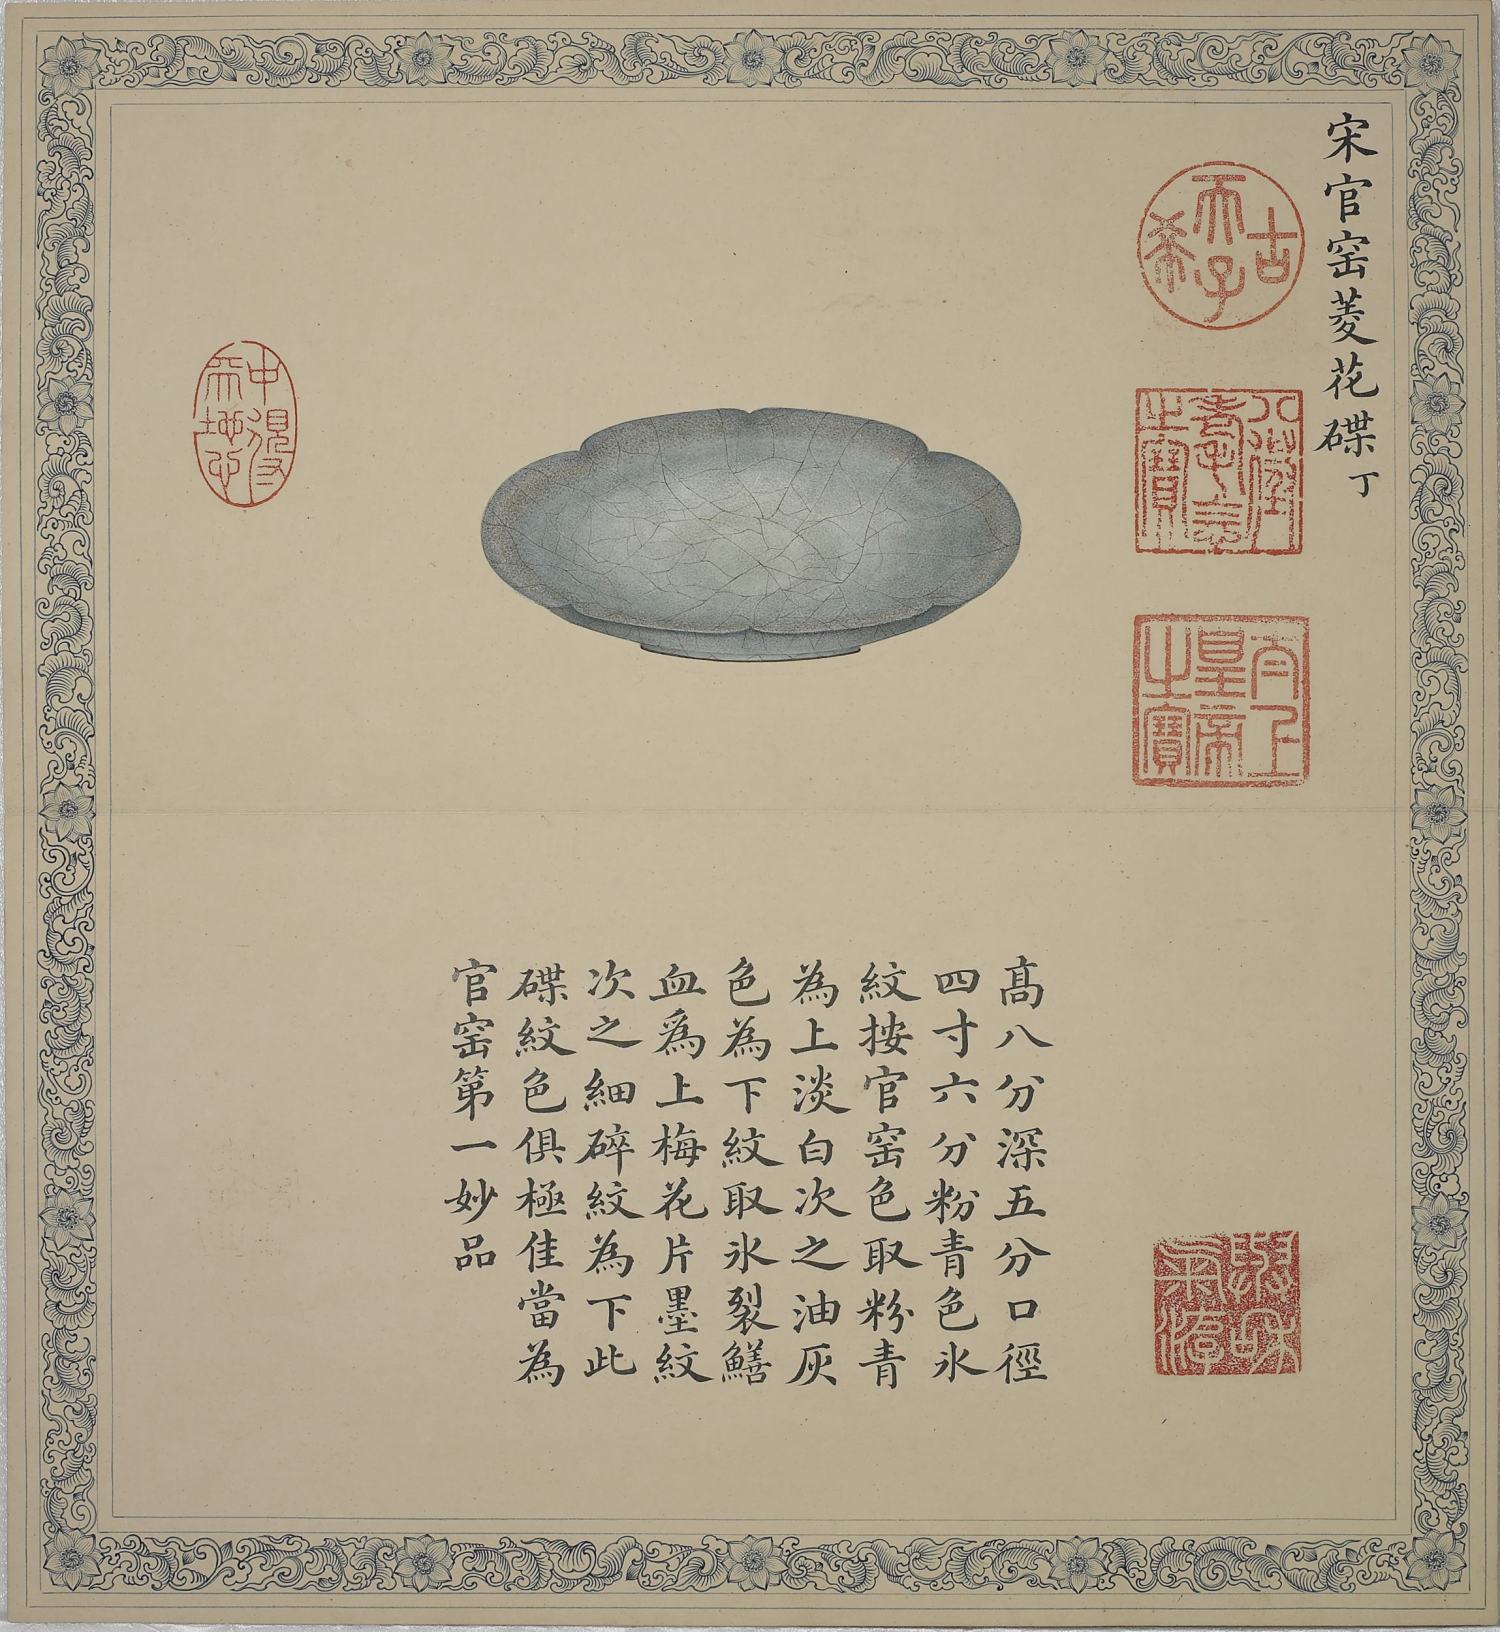 宋官窑菱花碟丁
古希天子
八徵耄念之寶
太上皇帝之寶
高八分深五分口徑
四寸六分粉青色氷
紋按官窑色取粉青
為上淡白次之油灰
色為下紋取氷裂鱔
血爲上梅花片墨紋
次之細碎紋為下此
碟紋色俱極佳當為
官窑第一妙品
中視天地心